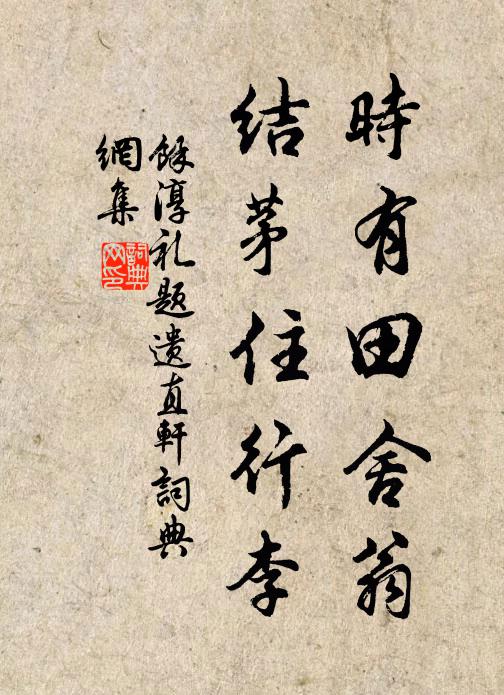 時有田舍翁
結茅住行李
餘淳礼题遗直軒詞典
網集
詞典
网印